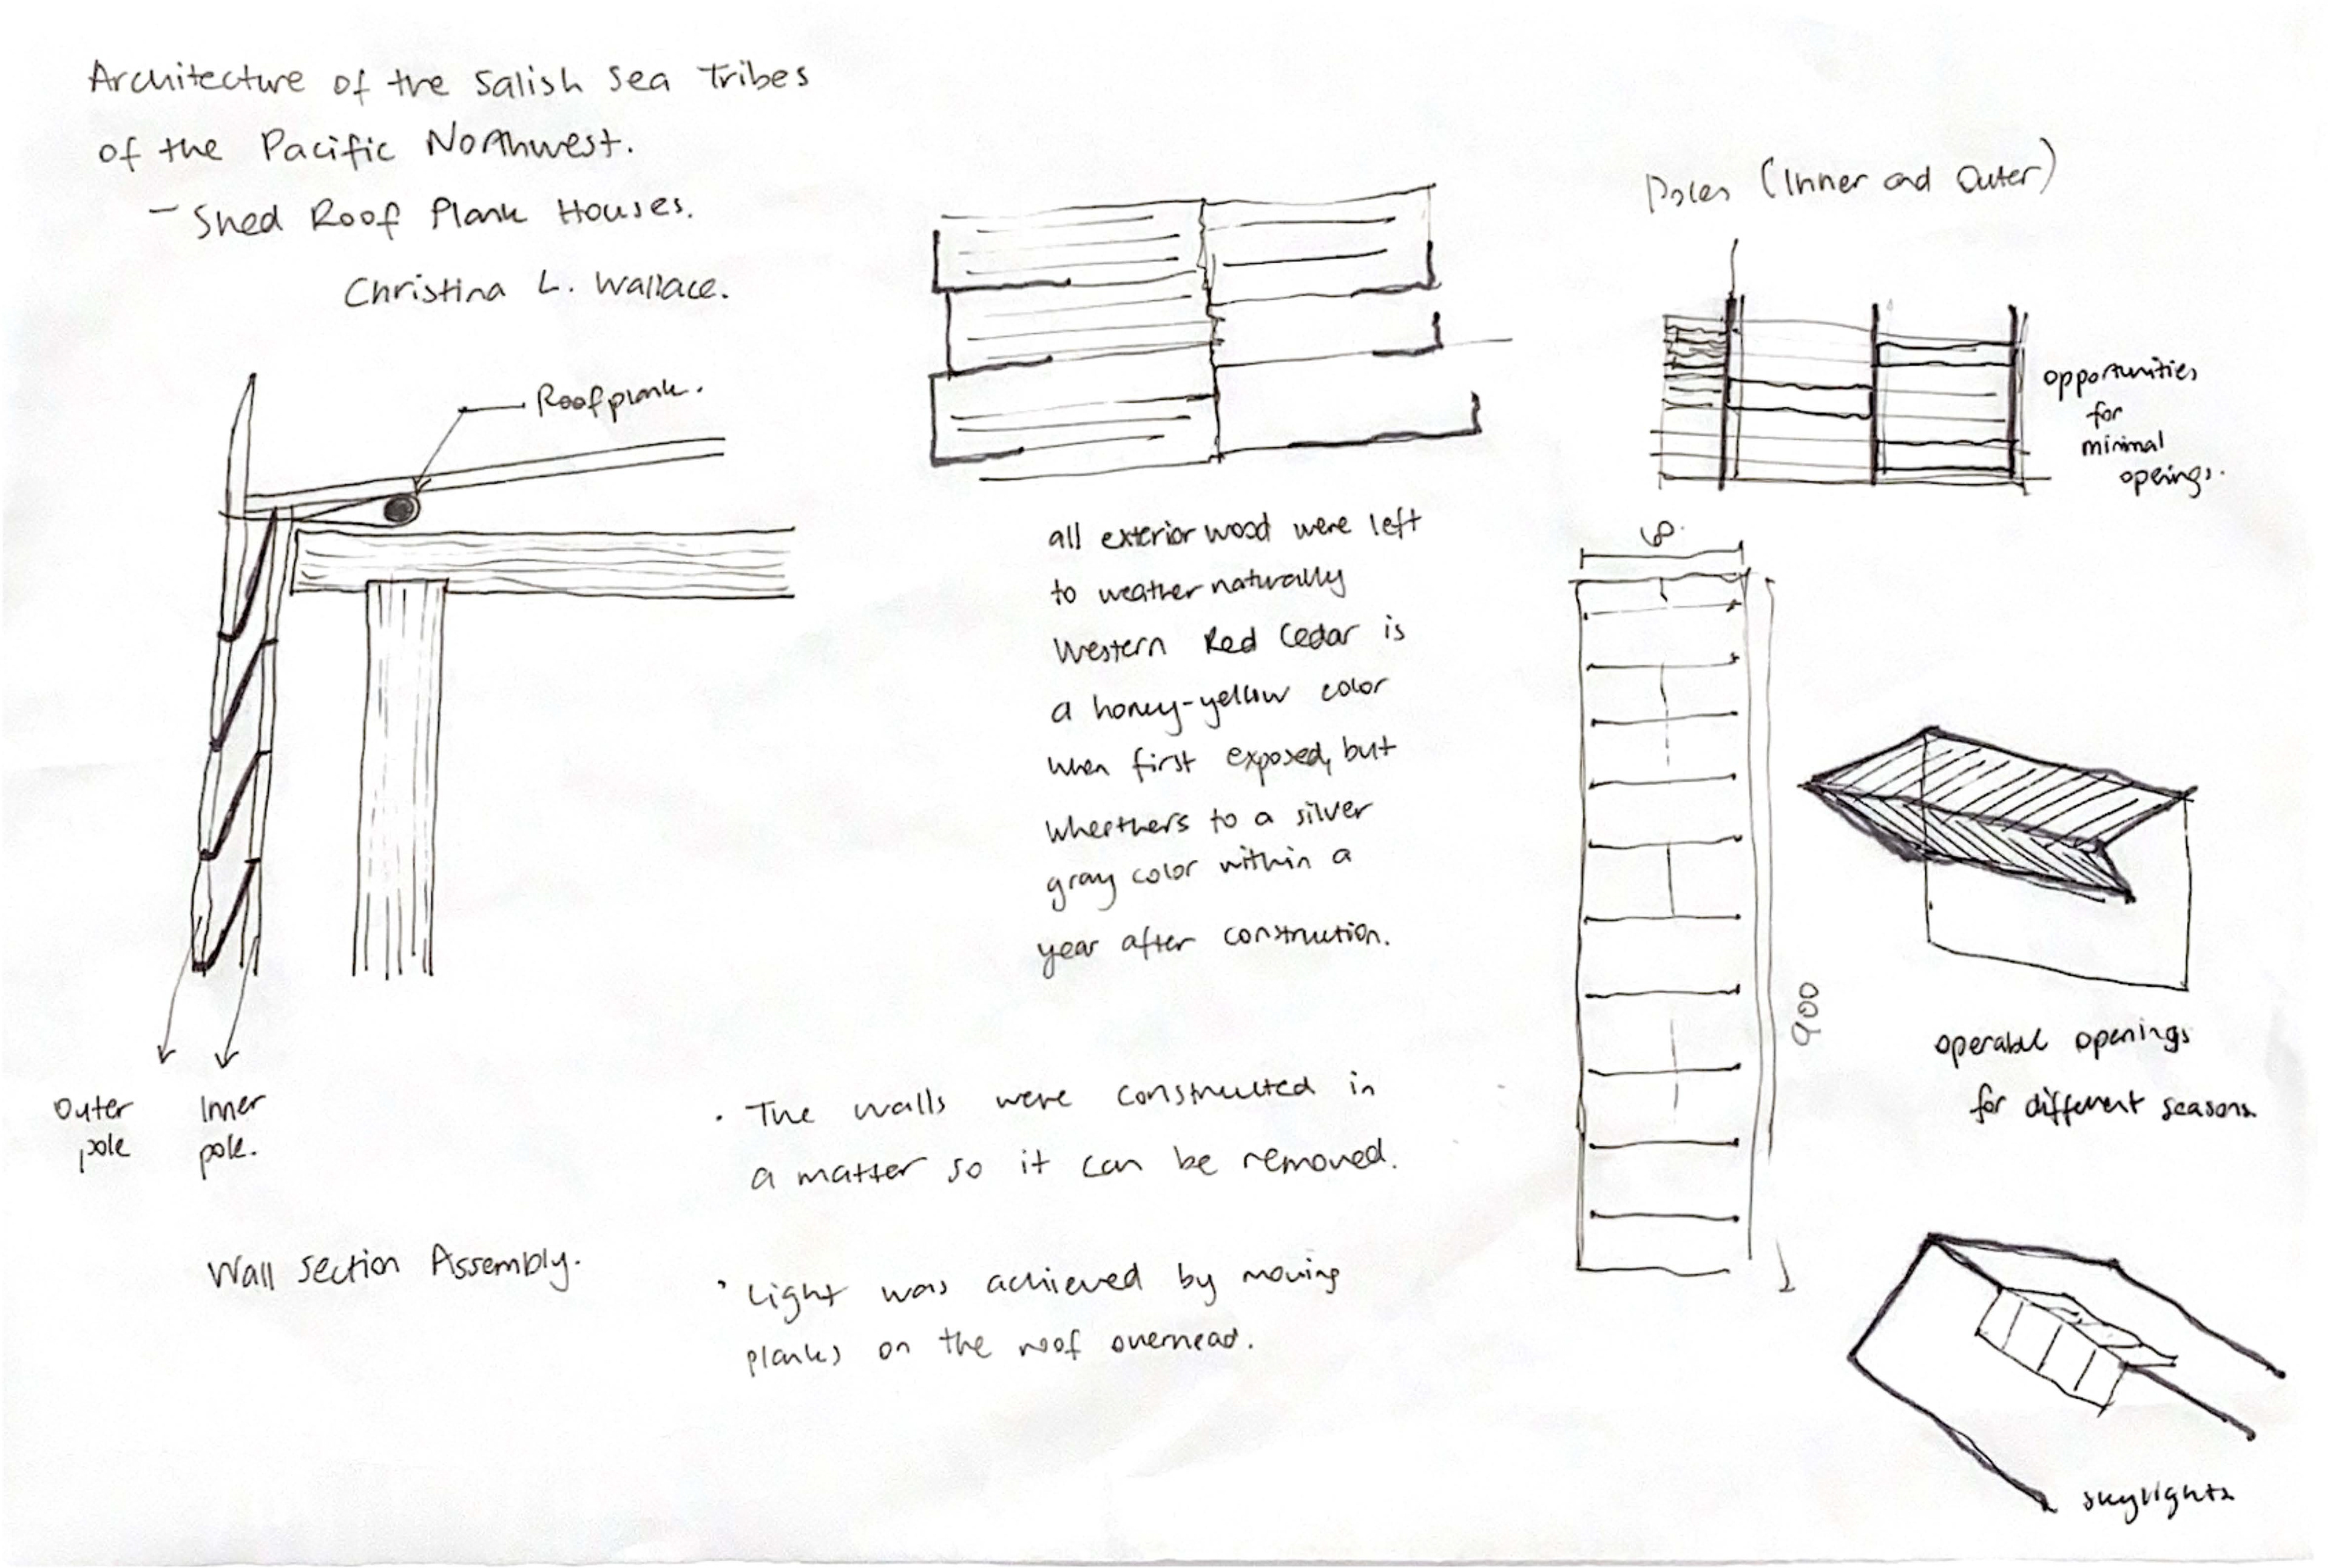 Architecture of the Salish Sea Tribes
of the Pacific Northwest.
- Shed Roof Plank Houses.
Christina L. Wallace.
Roof plank.
Outer pole
Inner pole.
Wall Section Assembly.
all exterior wood were left
to weather naturally
Western Red Cedar is
a honey-yellow color
when first exposed, but
wheathers to a silver
gray color within a
year after construction.
• The walls were constructed in
a matter so it can be removed.
• Light was achieved by moving
planks on the roof overhead.
Poles (Inner and Outer)
opportunities
for
minimal
openings.
60
900
operable openings
for different seasons.
skylights